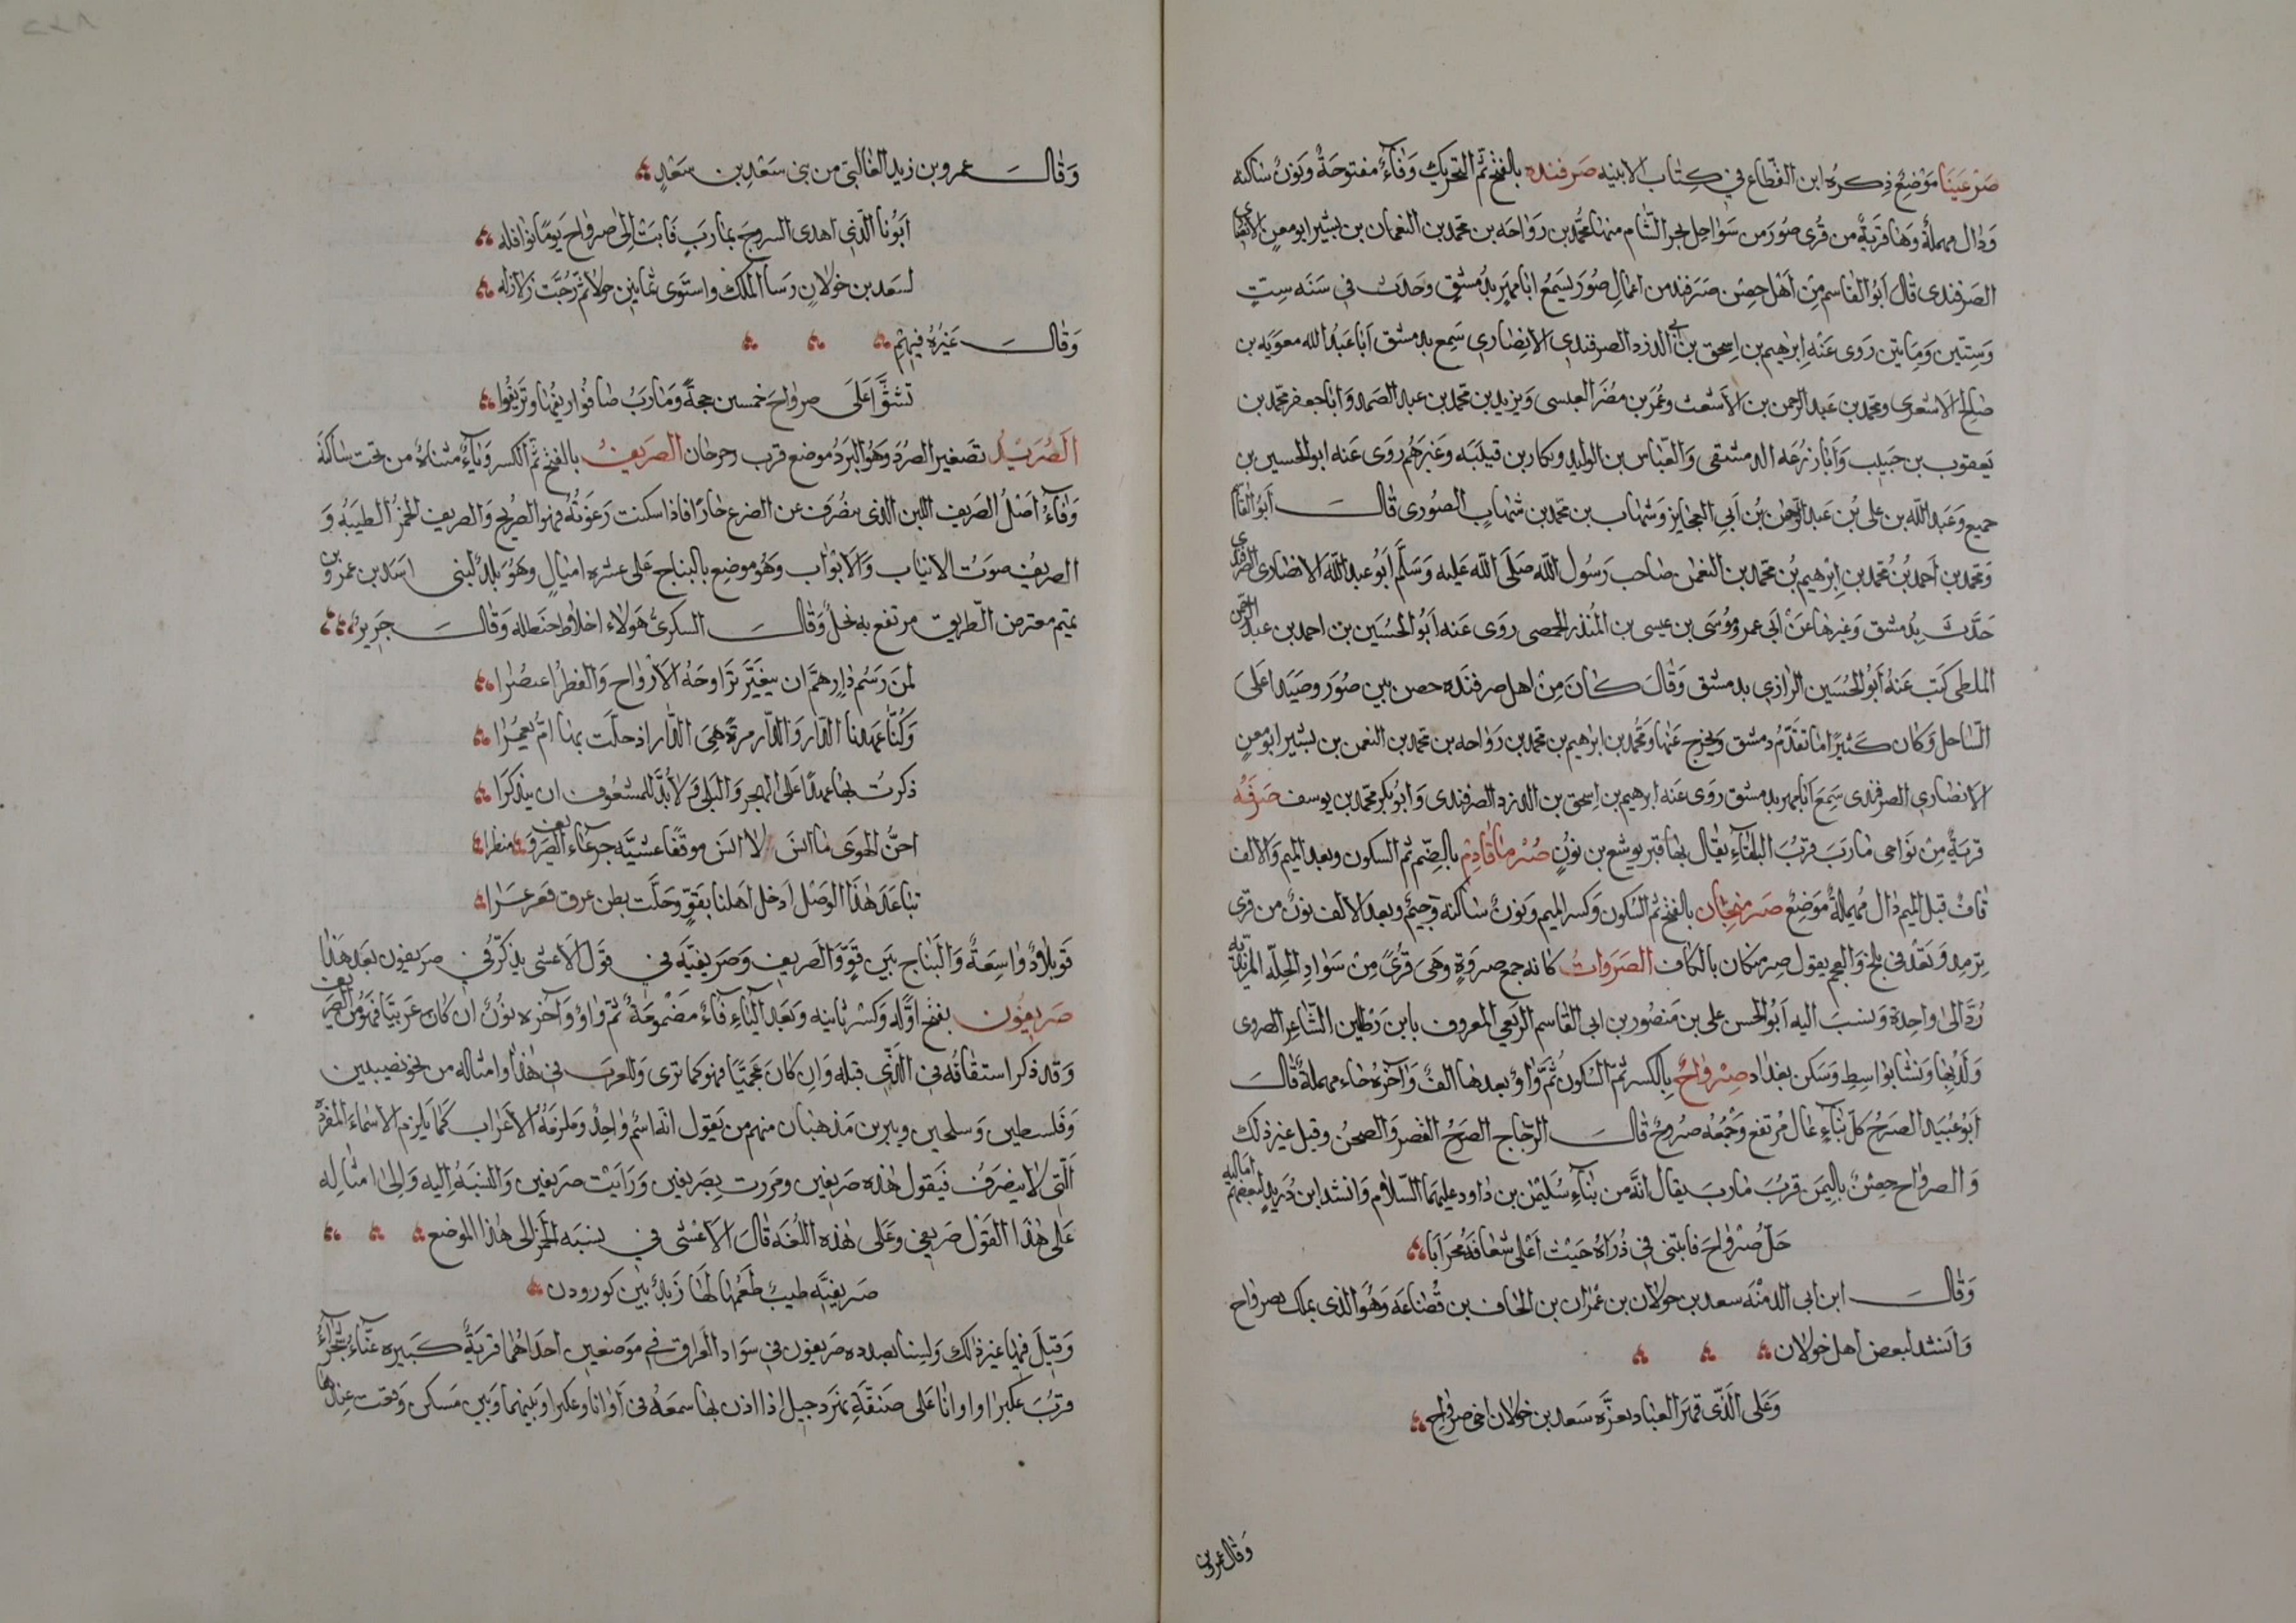 صَرْعَيْنَا مَوْضِعٌ ذِكرُه ابن القطاع في كتاب الابنيه صَرفنده بالفتح ثم التحريك وَفاءٌ مفتوحَةٌ وَنونٌ ساكنه
وَدال مهملةٌ وَهَا قَرَيةٌ من قُرى صُورَ من سَوَاحِل بحر الشام منها محمَّد بن رَوَاحَه بن محمد بن النعمان بن بشير ابو معن الانصاري
الصَرفندى قال اَبُو القاسم مِن اَهْل حِصْن صَرَفند من اعمال صُورَ يسَمعُ ابا مهر بدِمشقٍ وحَدث في سَنَه سِتٍ
وَسِتّين وَمِايتن رَوى عَنه اِبرهيم بن اِسحق بن ابي الدرد الصرفندي الانصاري سَمِع بدمشق اَبا عَبْد الله معوَيَه بن
صَالِح الاشعرى ومحمّد بن عَبد الرحمن بن الاَشعث وعُمَر بن مضَر العبسى وَيزيد بن محمد بن عبد الصَمد وَابا جعفر محمّد بن
يَعقوب بن حَبيب وَاَبا زرُعَه الدمشقى وَالعَّباس بن الوليد وبكار بن قتيبَه وغَيرَهُم رَوى عَنه ابو الحسين بن
جميع وَعَبد الله بن على بُن عَبد الرحمن بُن اَبي العجايز وَشهَاب بن محمّد بن شهَابٍ الصُورى قاَلَ اَبُو القاسم
وَمحمّد بن اَحمد بُن مُحمّد بن اِبرهيم بُن محمّد بن النعمن صَاحب رَسُول الله صَلَى الله عَليه وَسَلَّم اَبُو عبد الله الانصَارى الصرفندى
حَدَّث بِدمشق وَغيرهَا عَنْ اَبي عمر ومُوسَى بن عيسى بن المنذر الحمصى رَوَى عَنه اَبُو الحُسَين بن احمد بن عبد الرحمن
الملطى كتبَ عَنهُ اَبُو الحُسَين الرازي بدمشق وَقَالَ كانَ مِنْ اهل صرفنَده حصن بين صُوَر وصَيَدا عَلى
السَّاحل وَكان كَثيرًا مَا تَقدّم دمشق وَيخرج عَنها ومحُمَّد بن ابرهيم بن محمد بن رَوَاحه بن محمد بن النعمن بن بشير ابو معن
الانصَاري الصرفندى سَمِعَ اَبا مهر بدمشق رَوى عَنه ابرهيم بن اِسحق بن الدرد الصرفندى وَابُو بكر محمّد بن يوسف صَرفَهُ
قريَةٌ مِنْ نوَاحى مَارب قربُ البَلقاءِ يقال بها قبر يوشع بن نوُنٍ صُرمَاقَادِم بالضِّم ثم السكون وبعد الميم وَالالف
قافٌ قبل الميم دَال مُهملةٌ مَوْضِعٌ صَرمنجان بالفتح ثم السُكون وَكسر الميم وَنونٌ سَاكنه وَجيمٌ وبعد الالف نونٌ من قرى
ترمِد وَتعَدْ في بلخ وَالعجم يقول صِرمنكان بالكاف الصَرَواتُ كانه جمع صروَةٍ وهى قرُىً مِنْ سَوَاد الحِلّه المزيديه
رُدَّ الى واحِدة وَينسَبَ اليه اَبُو الحسن على بن مَنصُور بن ابى القاسم الربَعي المعروف بابن رَطلين الشاعر الصروى
وَلَد بهَا وَنَشا بوَاسِطِ وَسَكن بغدَاد صِرْوَاحٌ بِالكسر ثمّ السُكون ثمَّ وَاو بعدهَا الفٌ وَآخرُه حَاء مهملةٌ قال
اَبُو عُبَيد الصَرحُ كلّ بنَاءٍ عَال مُرتفع وَجَمْعُه صرُوحٌ قالَ الزجّاج الصَرحُ القصر وَالصحنُ وقيل غير ذلك
وَ الصرواح حِصنٌ باليمَن قربَ مَاربَ يقال انّه من بنَاءِ سُلَيْمٰن بن دَاود عليهما السَّلام وَانشد ابن دُريد لبعضهم في اماليه
حَلّ صُرْوَاحَ فابتنى في ذُرَاهُ حَيْثُ اَعْلى شعَافَه مُحرَابا
وَقالَ ابن ابى الدمنْه سعد بن خولان بن عمْرَان بن الحاف بن قُضَاعَه وَهُوَ الذى تملك بصرواح
وَانشد لبعض اهل خولان
وَعَلى الَذّي قهَر العبَاد بعزَّه سَعد بن خولان اخى صرواحِ
وَقال عمرو بن
وَقالَ عمرو بن زيد الغالبىّ من بنى سَعْدِ بن سَعْدٍ
اَبُونا الّذي اهدى السروجَ بمَاربٍ فَابَتْ اِلىَ صِروَاحَ يَومًا نوَافله
لسَعد بن خولانِ رَسَا الملك وَاستَوى ثمانين حولا ثمّ رُجَّت زلازله
وَقالَ غَيْرُهُ فيهْمِ
تَشتَّا عَلَى صِروَاحَ خمسين حجةً وَمَاربَ صَافوُا ريفهَا وترَبَّعُوا
اَلصُرَيْدُ تَصغير الصُرَد وَهُوَ البَرْدُ موضع قرب رحرحان الصَريفُ بالفتح ثمّ الكسر وَياءٌ مثناهٌ من تحت سَاكنةُ
وَفاءٌ اَصْلُ الصَريف اللبن الذى ينصَرفُ عن الضرع حَارًا فاذا سكنت رَغوَتُهُ فهو الصَريح وَالصريف الخمرُ الطيبَهُ وَ
الصريفُ صوتُ الانيَاب وَالابوَاب وَهُوَ موضِع بالبناح عَلى عشره اميَالٍ وَهُوَ بلَدٌ لبنى اسَد بن عمرو بن
تميم معترض الطريق مرتفع به نخلٌ وَقالَ السكرىّ هَولاء اخلاط حنظله وَقالَ جَرِير
لمَنَ رَسَمُ دَارٍ هَمَّ ان يتغَيَّرَ ترَاوحَهُ الاَرْوَاح وَالقطرُ اعصُرا
وَكُنّا عَهدنَا الدّارَ وَالدّار مرةً هِيَ الدّار اذ حلّت بهَا امُّ يَعمُرا
ذكرت بهَا عهدًا عَلى الهجر وَالبلى وَ لاَبُدَّ للمشعُوف ان يتذكرَا
احنُّ الهوَى مَا انسَ لا انسَ موقفًا عشيَّه جرعَاء الصَريف منظرا
تباعَدَ هٰذا الوَصْلُ اِذ حَلَّ اهلنَا بقوٍّ وَحَلَّت بطن عرق فعَرعَرا
قَو بلاَدٌ وَاسِعَةٌ وَالبنَاج بَين قوٍّ وَالصَريف وَصَريفيَّه في قَول الاَعشى يذكرُ في صَريفون بَعد هٰذا
صَريفوُن بفتح اوّلِه وَكسْر ثانيه وَبَعد اليَاءِ فاءٌ مَضْمُومَةٌ ثمّ وَاو وَآخره نوُنٌ ان كان عَربيًا فهُوَ مِن الصَريف
وَقد ذكر اشتقاقُه في الَّذِي قبله وَاِن كان عجميًّا فهو كما ترى وَللعرب في هٰذا وامثاله من نحو نصيبين
وَفَلسطين وَسلحين ويبرين مَذهبَان منهم من يَقول انه اسْم وَاحِدٌ وَيلزمُهُ الاِعرَاب كَمَا يَلزم الاسماءَ المفردَه
اَلّتى لا ينصَرفُ فيَقول هٰذه صَريفين ومَررت بِصَريفين وَرَايتُ صَريفين وَالنسَبَهُ اِليه وَاِلى امثالِه
عَلى هٰذَا القَوْل صَريفى وعَلى هٰذه اللُغَه قالَ الاَعشى في نسبَه الخمر اِلى هٰذا الموضع
صَريفيَّه طيبٌ طعَمُها لهَا زَبدٌ بَين كوز ودن
وَقيلَ فيهَا غير ذلك وَليسَا بصدده صَريفون في سَوَاد العراق في مَوضعين احدَاهُمَا قريَةٌ كَبيره غنَّاءُ شجرَاءُ
قربَ عكبرا واوانا عَلى ضفَّةِ نهر دجيل اذا اذن بها سمعُوه في اوَانا وعكبرا وَبينهما وَبين مَسكن وَقعت عندها